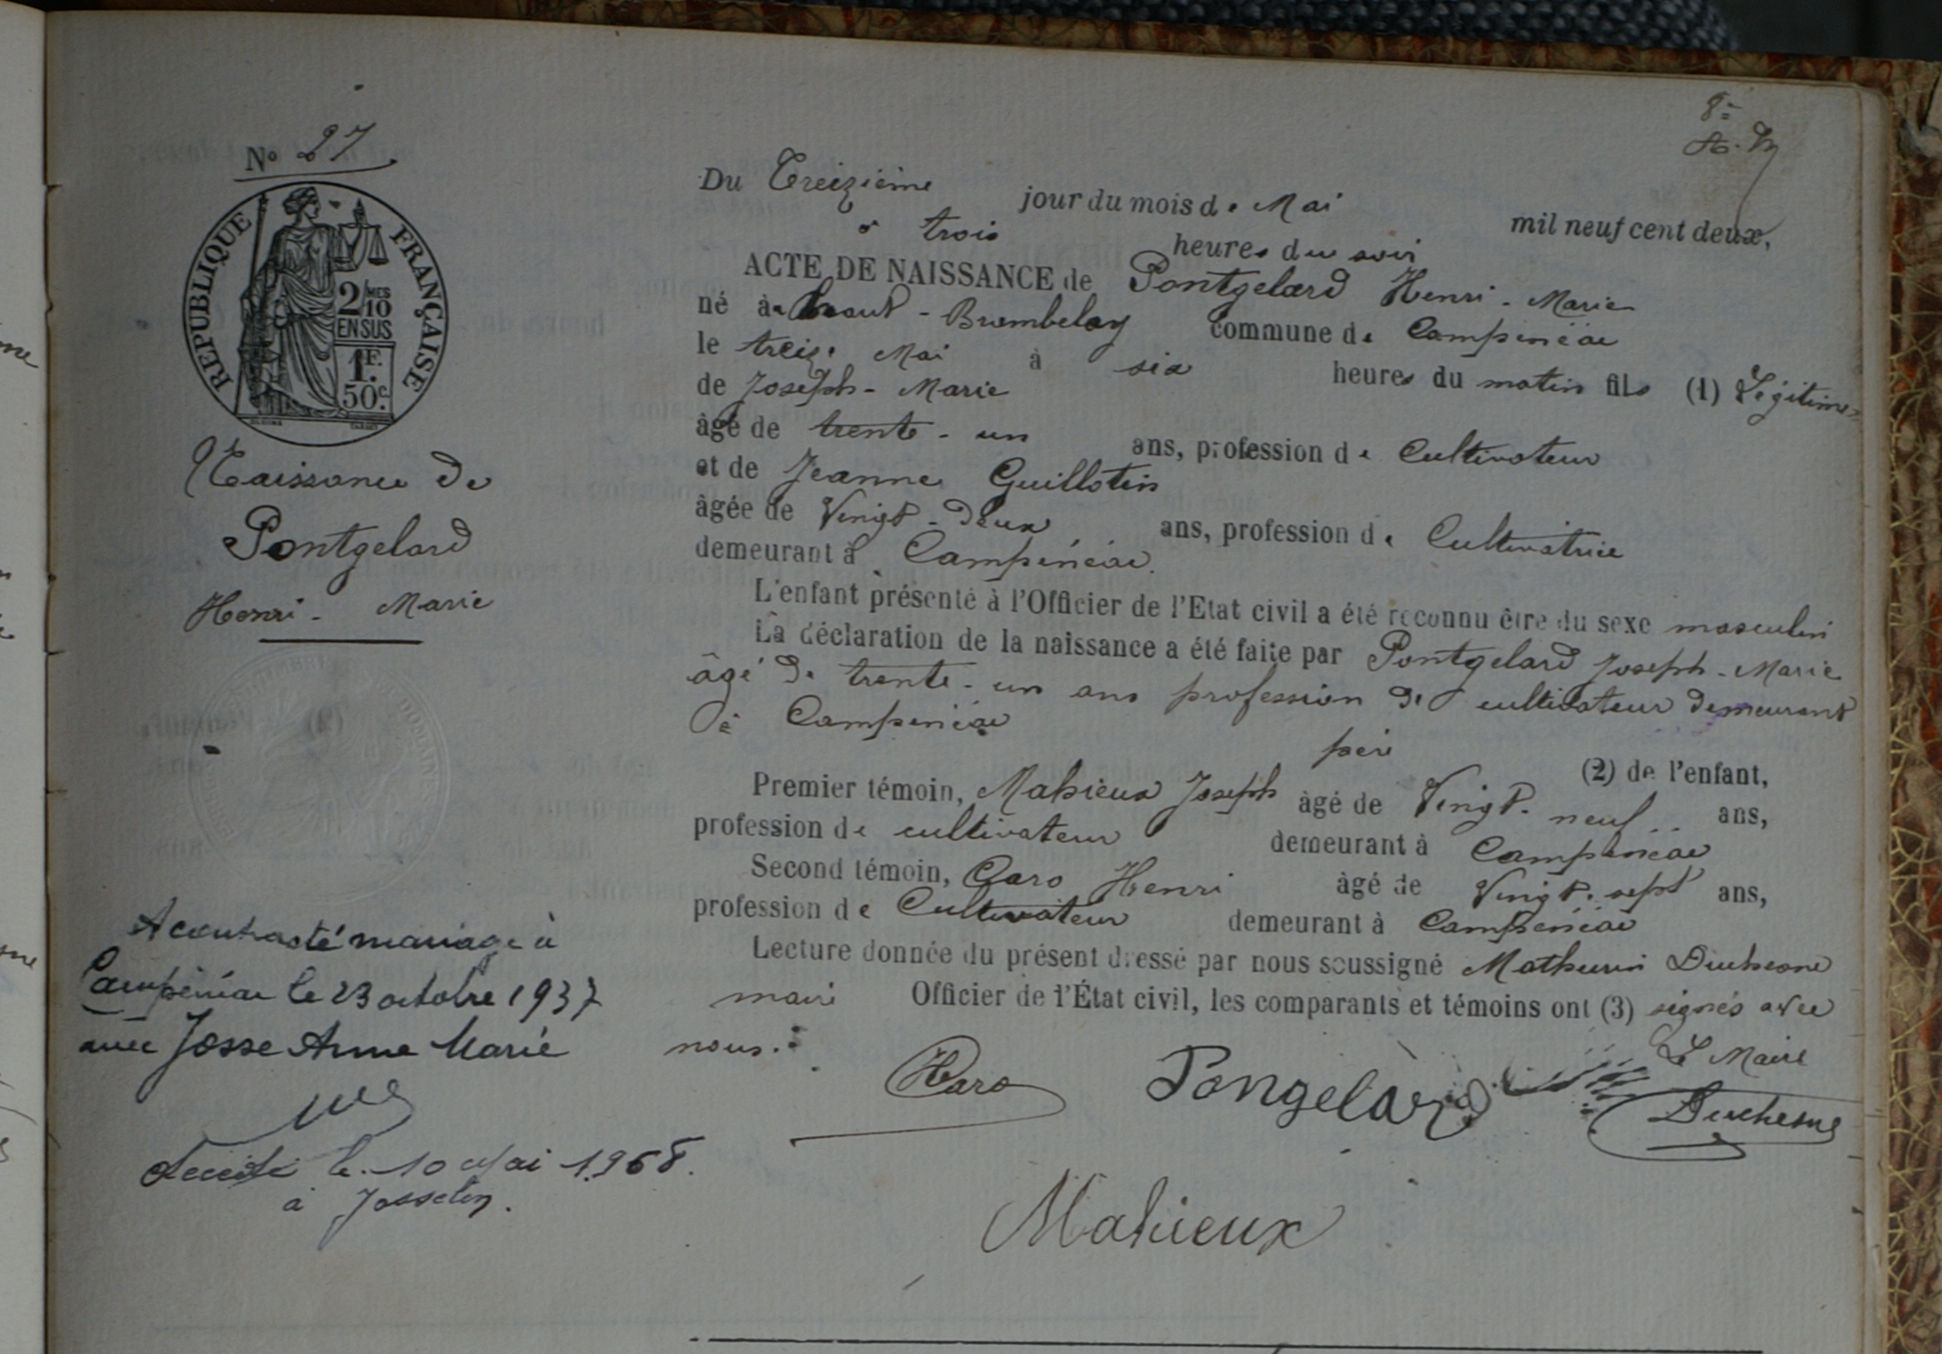 8e
N° 27
RÉPUBLIQUE FRANÇAISE
2/10 MES
EN SUS
1F.
50c.
Naissance de
Pontgelard
Henri - Marie
Du Treizième jour du mois de Mai mil neuf cent deux,
à trois heures du soir
ACTE DE NAISSANCE de Pontgelard Henri - Marie
né à haut - Brambelay commune de Campénéac
le treize Mai à six heures du matin fils (1) Légitime
de Joseph - Marie
âgé de trente - un ans, profession de Cultivateur
et de Jeanne Guillotin
âgée de Vingt - deux ans, profession de Cultivatrice
demeurant à Campénéac.
L'enfant présenté à l'Officier de l'Etat civil a été reconnu être du sexe masculin
La déclaration de la naissance a été faite par Pontgelard Joseph - Marie
âgé de trente - un ans profession de cultivateur demeurant
à Campénéac
père (2) de l'enfant,
Premier témoin, Mahieux Joseph âgé de Vingt - neuf ans,
profession de cultivateur demeurant à Campénéac
Second témoin, Caro Henri âgé de Vingt - sept ans,
profession de Cultivateur demeurant à Campénéac
Lecture donnée du présent dressé par nous soussigné Mathurin Duchesne
maire Officier de l'État civil, les comparants et témoins ont (3) signés avec
nous.
Le Maire
HCaro Pongelard Duchesne
Mahieux
A contracté mariage à
Campénéac le 23 octobre 1937
avec Josse Anne Marie
Décédé le 10 Mai 1968.
à Josselin.